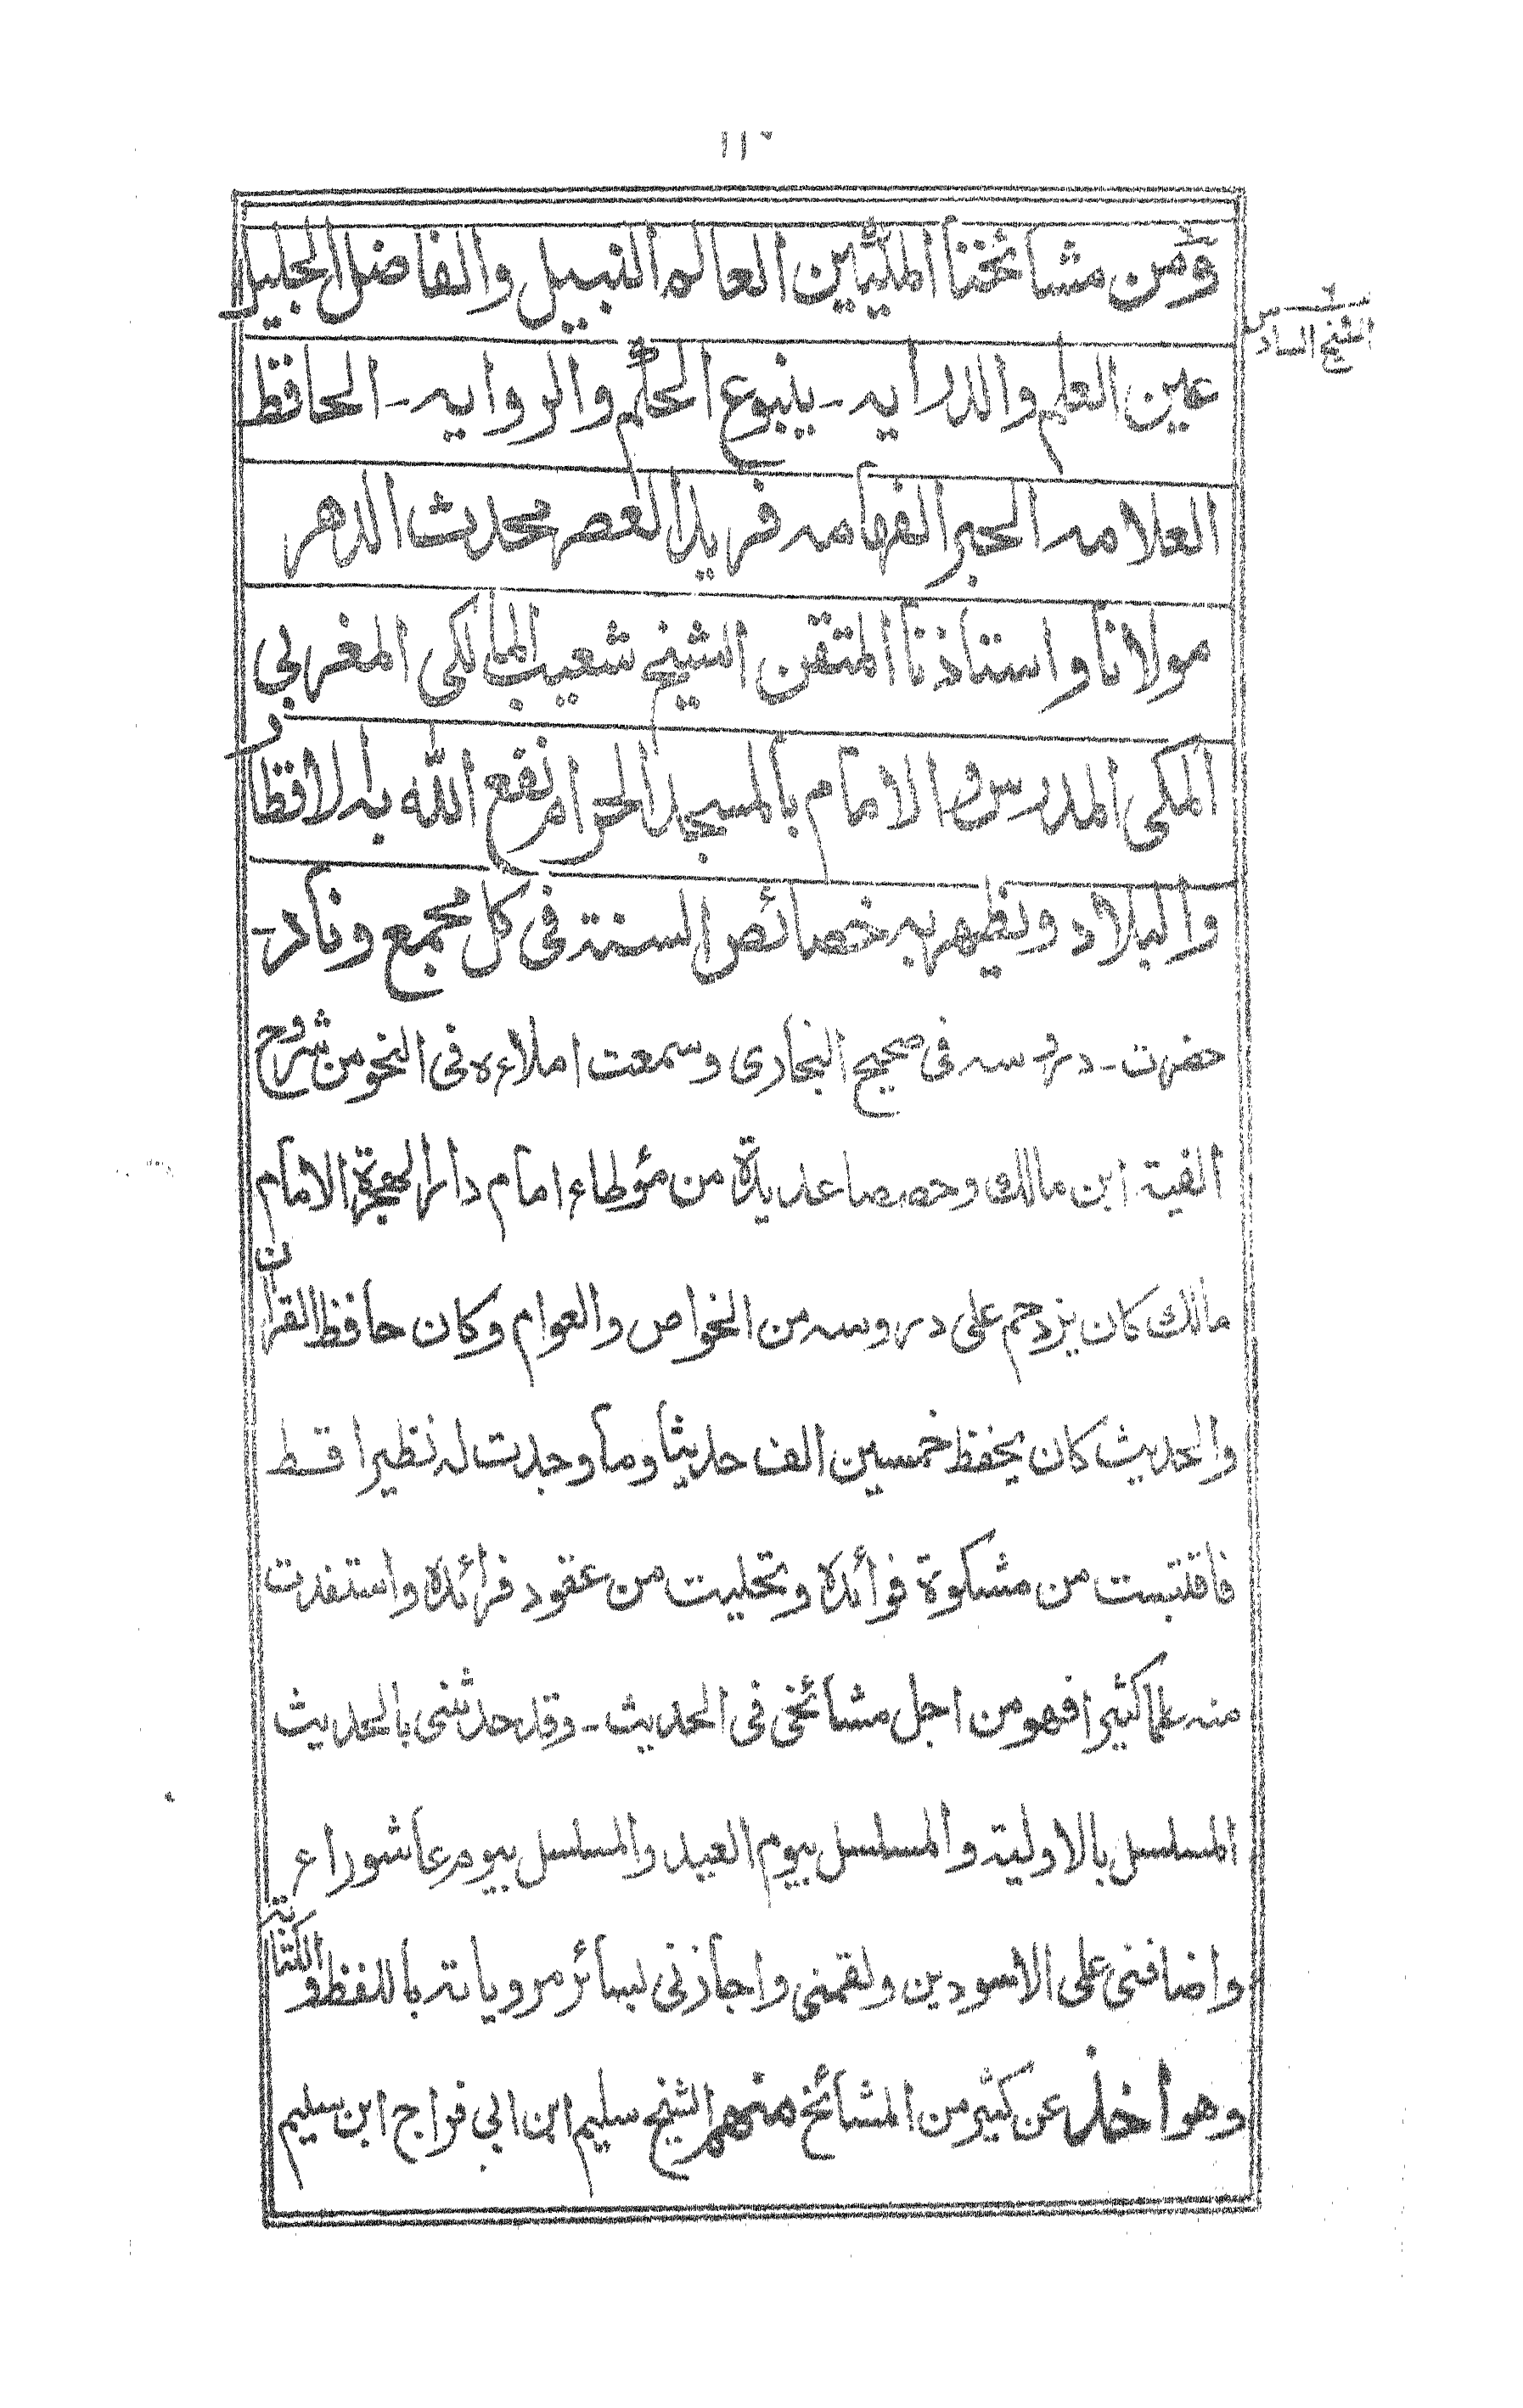 ١١
ومن مشائخنا المكيين العالم النبيل والفاضل الجليل
الشيخ السادس
عين العلم والدرايه - ينبوع الحكم والروايه - الحافظ
العلامه الحبر الفهامه فريد العصر محدث الدهر
مولانا واستاذنا المتقن الشيخ شعيب المالكى المغربي
المكى المدرس والامام بالمسجد الحرام نفع الله به الاقطار
والبلاد ويظهر به خصائص السنة فى كل مجمع وناد -
حضرت - دروسه فى صحيح البخارى وسمعت املاءه فى النحو من شروح
الفية ابن مالك وحصصا عديدة من مؤطاء امام دار الهجرة الامام
مالك كان يزدحم على دروسه من الخواص والعوام وكان حافظ القران
والحديث كان يحفظ خمسين الف حديثا وما وجدت له نظيرا قط
فاقتبست من مشكوة فوائده وتحليت من عقود فرائده واستفدت
منه علما كثيرا فهو من اجل مشائخى فى الحديث - وقد حدثنى بالحديث
المسلسل بالاولية والمسلسل بيوم العيد والمسلسل بيوم عاشوراء
واضافنى على الاسودين ولقمنى واجازنى لسائر مروياته باللفظ والكتابة
وهو اخذ عن كثير من المشائخ منهم الشيخ سليم ابن ابي فراج ابن سليم